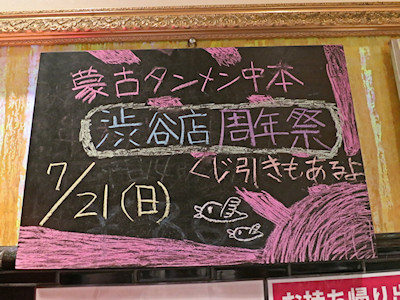 蒙古タンメン中本
渋谷店 周年祭
くじ引きもあるよ
7/21(日)
お持ち帰り